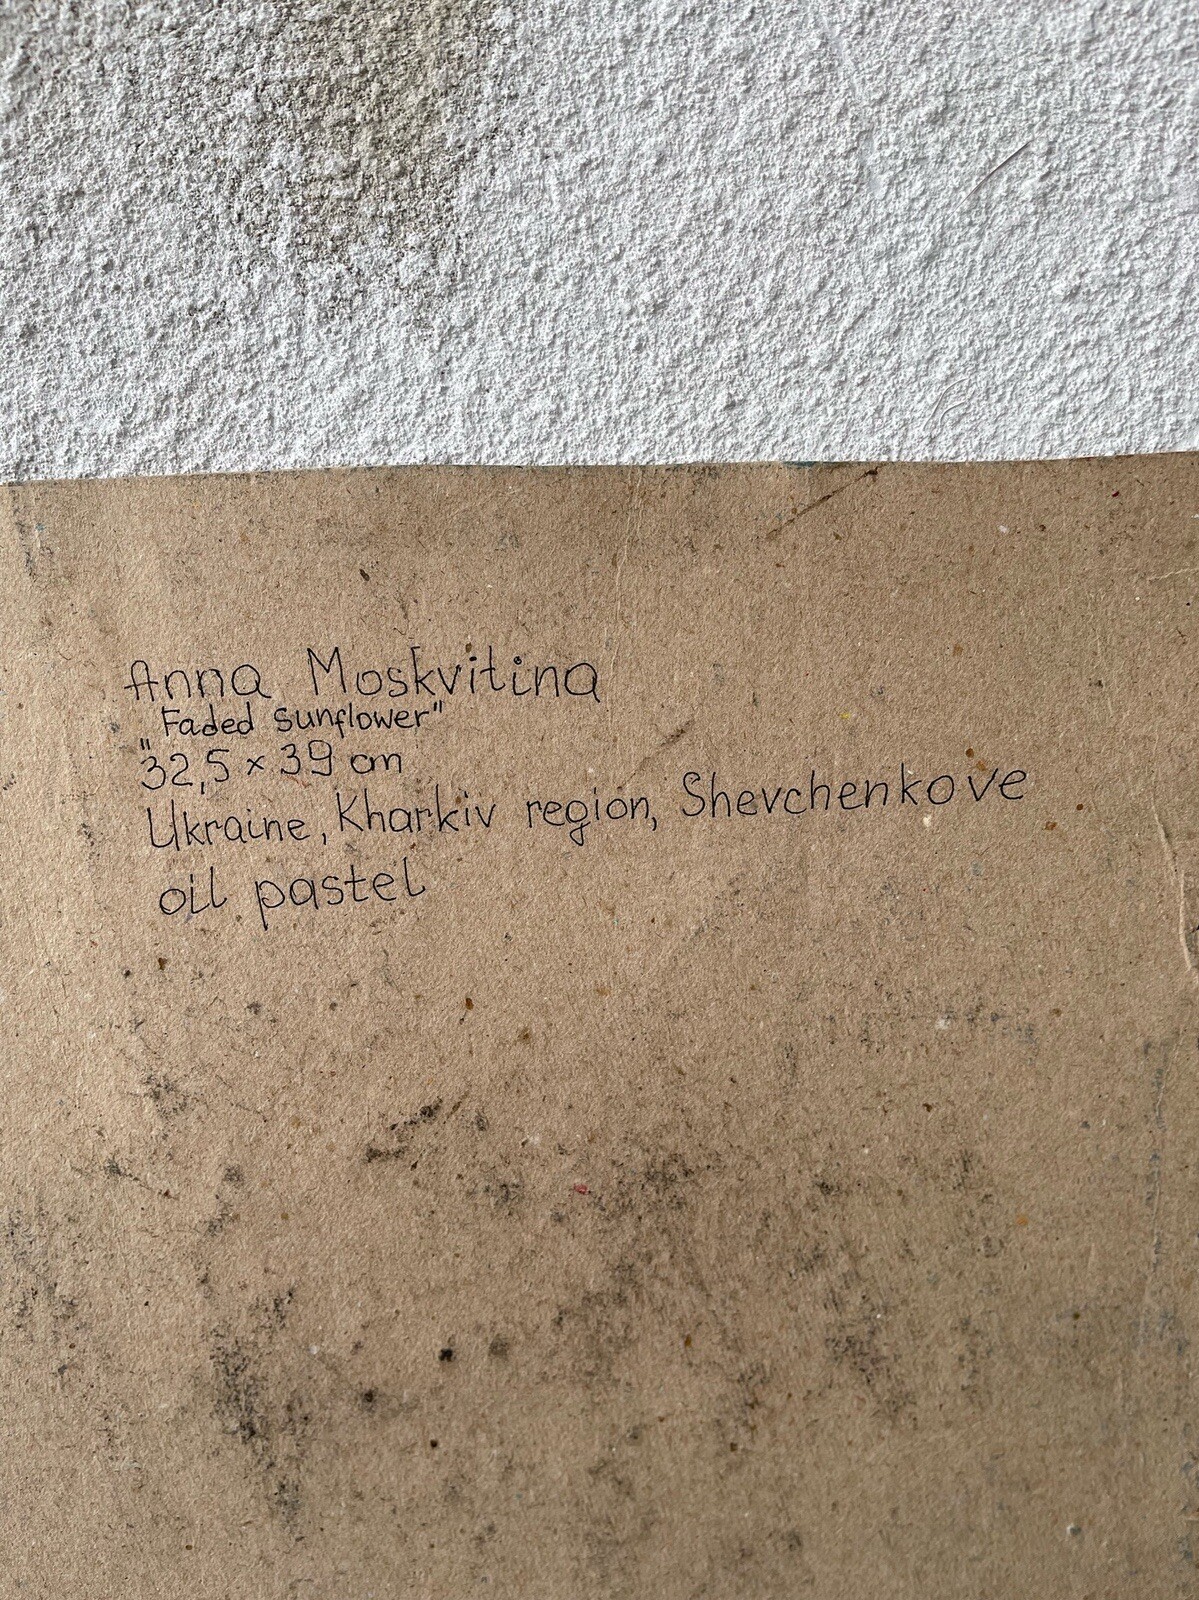 Anna Moskvitina
"Faded sunflower"
32,5 x 39 cm
Ukraine, Kharkiv region, Shevchenkove
oil pastel